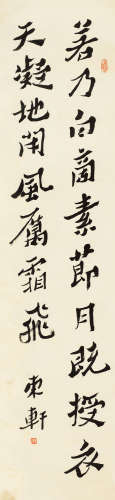 若乃白商素節月既授衣
天凝地閉風厲霜飛
東軒